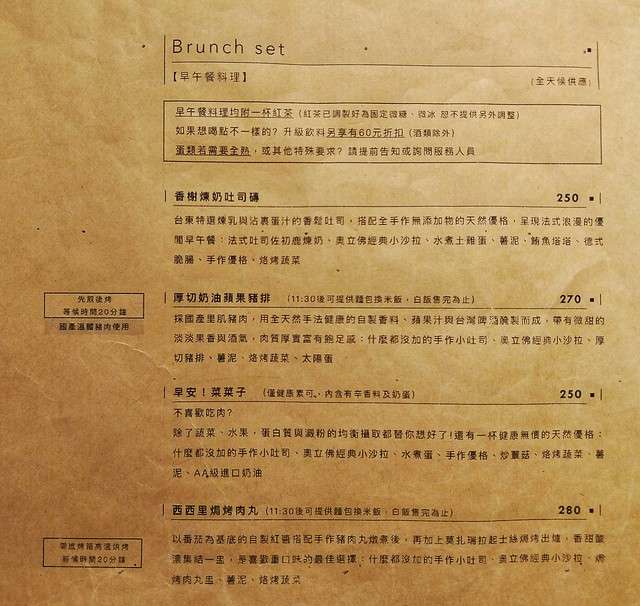 Brunch set
【早午餐料理】
(全天候供應)
早午餐料理均附一杯紅茶（紅茶已調製好為固定微糖、微冰 恕不提供另外調整）
如果想喝點不一樣的? 升級飲料另享有60元折扣（酒類除外）
蛋類若需要全熟，或其他特殊要求? 請提前告知或詢問服務人員
香榭煉奶吐司磚 250
台東特選煉乳與沾裹蛋汁的香鬆吐司，搭配全手作無添加物的天然優格，呈現法式浪漫的優
閒早午餐：法式吐司佐初鹿煉奶、奧立佛經典小沙拉、水煮土雞蛋、薯泥、鮪魚塔塔、德式
脆腸、手作優格、烙烤蔬菜
先煎後烤
等候時間20分鐘
國產溫體豬肉使用
厚切奶油蘋果豬排 (11:30後可提供麵包換米飯，白飯售完為止) 270
採國產里肌豬肉，用全天然手法健康的自製香料、蘋果汁與台灣啤酒醃製而成，帶有微甜的
淡淡果香與酒氣，肉質厚實富有飽足感：什麼都沒加的手作小吐司、奧立佛經典小沙拉、厚
切豬排、薯泥、烙烤蔬菜、太陽蛋
早安！菜菜子 (僅健康素可、內含有辛香料及奶蛋) 250
不喜歡吃肉?
除了蔬菜、水果，蛋白質與澱粉的均衡攝取都替你想好了!還有一杯健康無價的天然優格：
什麼都沒加的手作小吐司、奧立佛經典小沙拉、水煮蛋、手作優格、炒蕈菇、烙烤蔬菜、薯
泥、AA級進口奶油
西西里焗烤肉丸 (11:30後可提供麵包換米飯，白飯售完為止) 280
以番茄為基底的自製紅醬搭配手作豬肉丸燉煮後，再加上莫扎瑞拉起士絲焗烤出爐，香甜酸
濃集結一里，是喜歡重口味的最佳選擇：什麼都沒加的手作小吐司、奧立佛經典小沙拉、焗
烤肉丸、薯泥、烙烤蔬菜
烤箱高溫烘烤
等候時間20分鐘